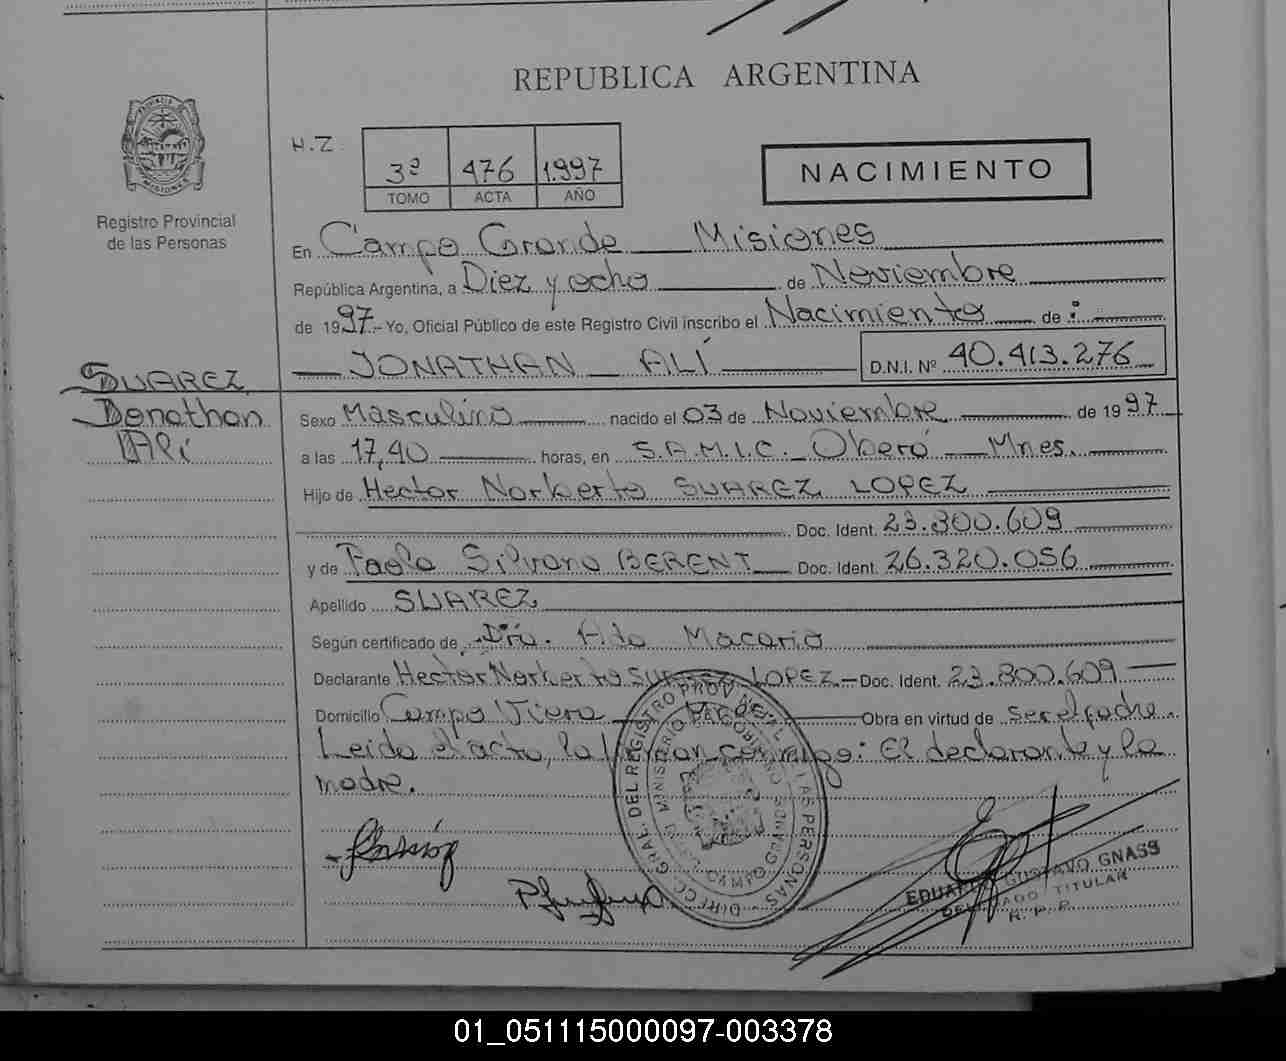 REPUBLICA ARGENTINA
PROVINCIA DE
MISIONES
Registro Provincial
de las Personas
H.Z.
3º 476 1.997
TOMO ACTA AÑO
NACIMIENTO
En Campo Grande Misiones
República Argentina, a Diez y ocho de Noviembre
de 1997.- Yo, Oficial Público de este Registro Civil inscribo el Nacimiento de :
JONATHAN ALÍ D.N.I. Nº 40.413.276
SUAREZ
Jonathan
Alí
Sexo Masculino nacido el 03 de Noviembre de 1997
a las 17,40 horas, en S.A.M.I.C. Oberá Mnes.
Hijo de Hector Norberto SUAREZ LOPEZ
Doc. Ident. 23.800.609
y de Paola Silvana BERENT Doc. Ident. 26.320.056
Apellido SUAREZ
Según certificado de Dra. Ada Macario
Declarante Hector Norberto SUAREZ LOPEZ.- Doc. Ident. 23.800.609
Domicilio Campo Viera Obra en virtud de ser el padre.
Leida el acta, la firman conmigo: El declarante y la
madre.
DIRECC. GRAL. DEL REGISTRO PROV. DE LAS PERSONAS
MINISTERIO DE GOBIERNO
CAMPO GRANDE
EDUARDO GUSTAVO GNASS
DELEGADO TITULAR
R. P. P.
01_051115000097-003378